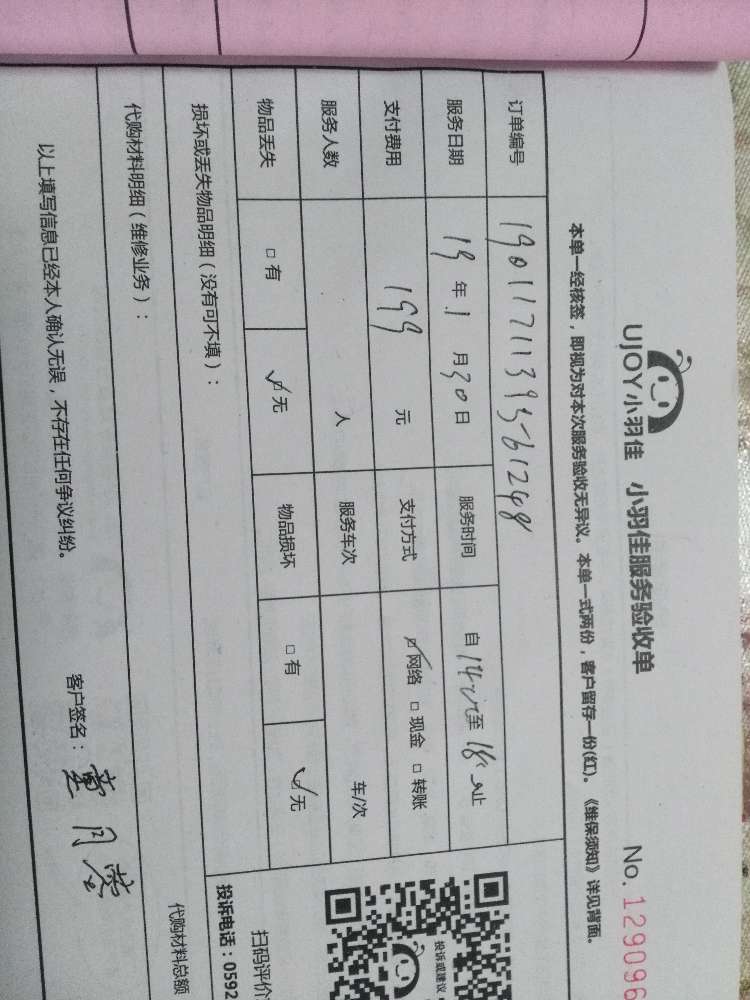 UJOY小羽佳 小羽佳服务验收单
No. 129096
本单一经核签，即视为对本次服务验收无异议。本单一式两份，客户留存一份(红)。《维保须知》详见背面。
订单编号
服务日期 19 年 1 月 30 日 服务时间 自 14 至 18 止
支付费用 199 元 支付方式 ☑网络 □现金 □转账
服务人数 人 服务车次 车/次
物品丢失 □有 ☑无 物品损坏 □有 ☑无
损坏或丢失物品明细（没有可不填）：
投诉或建议
扫码评价
投诉电话：0592
代购材料明细（维修业务）：
代购材料总额
以上填写信息已经本人确认无误，不存在任何争议纠纷。
客户签名：